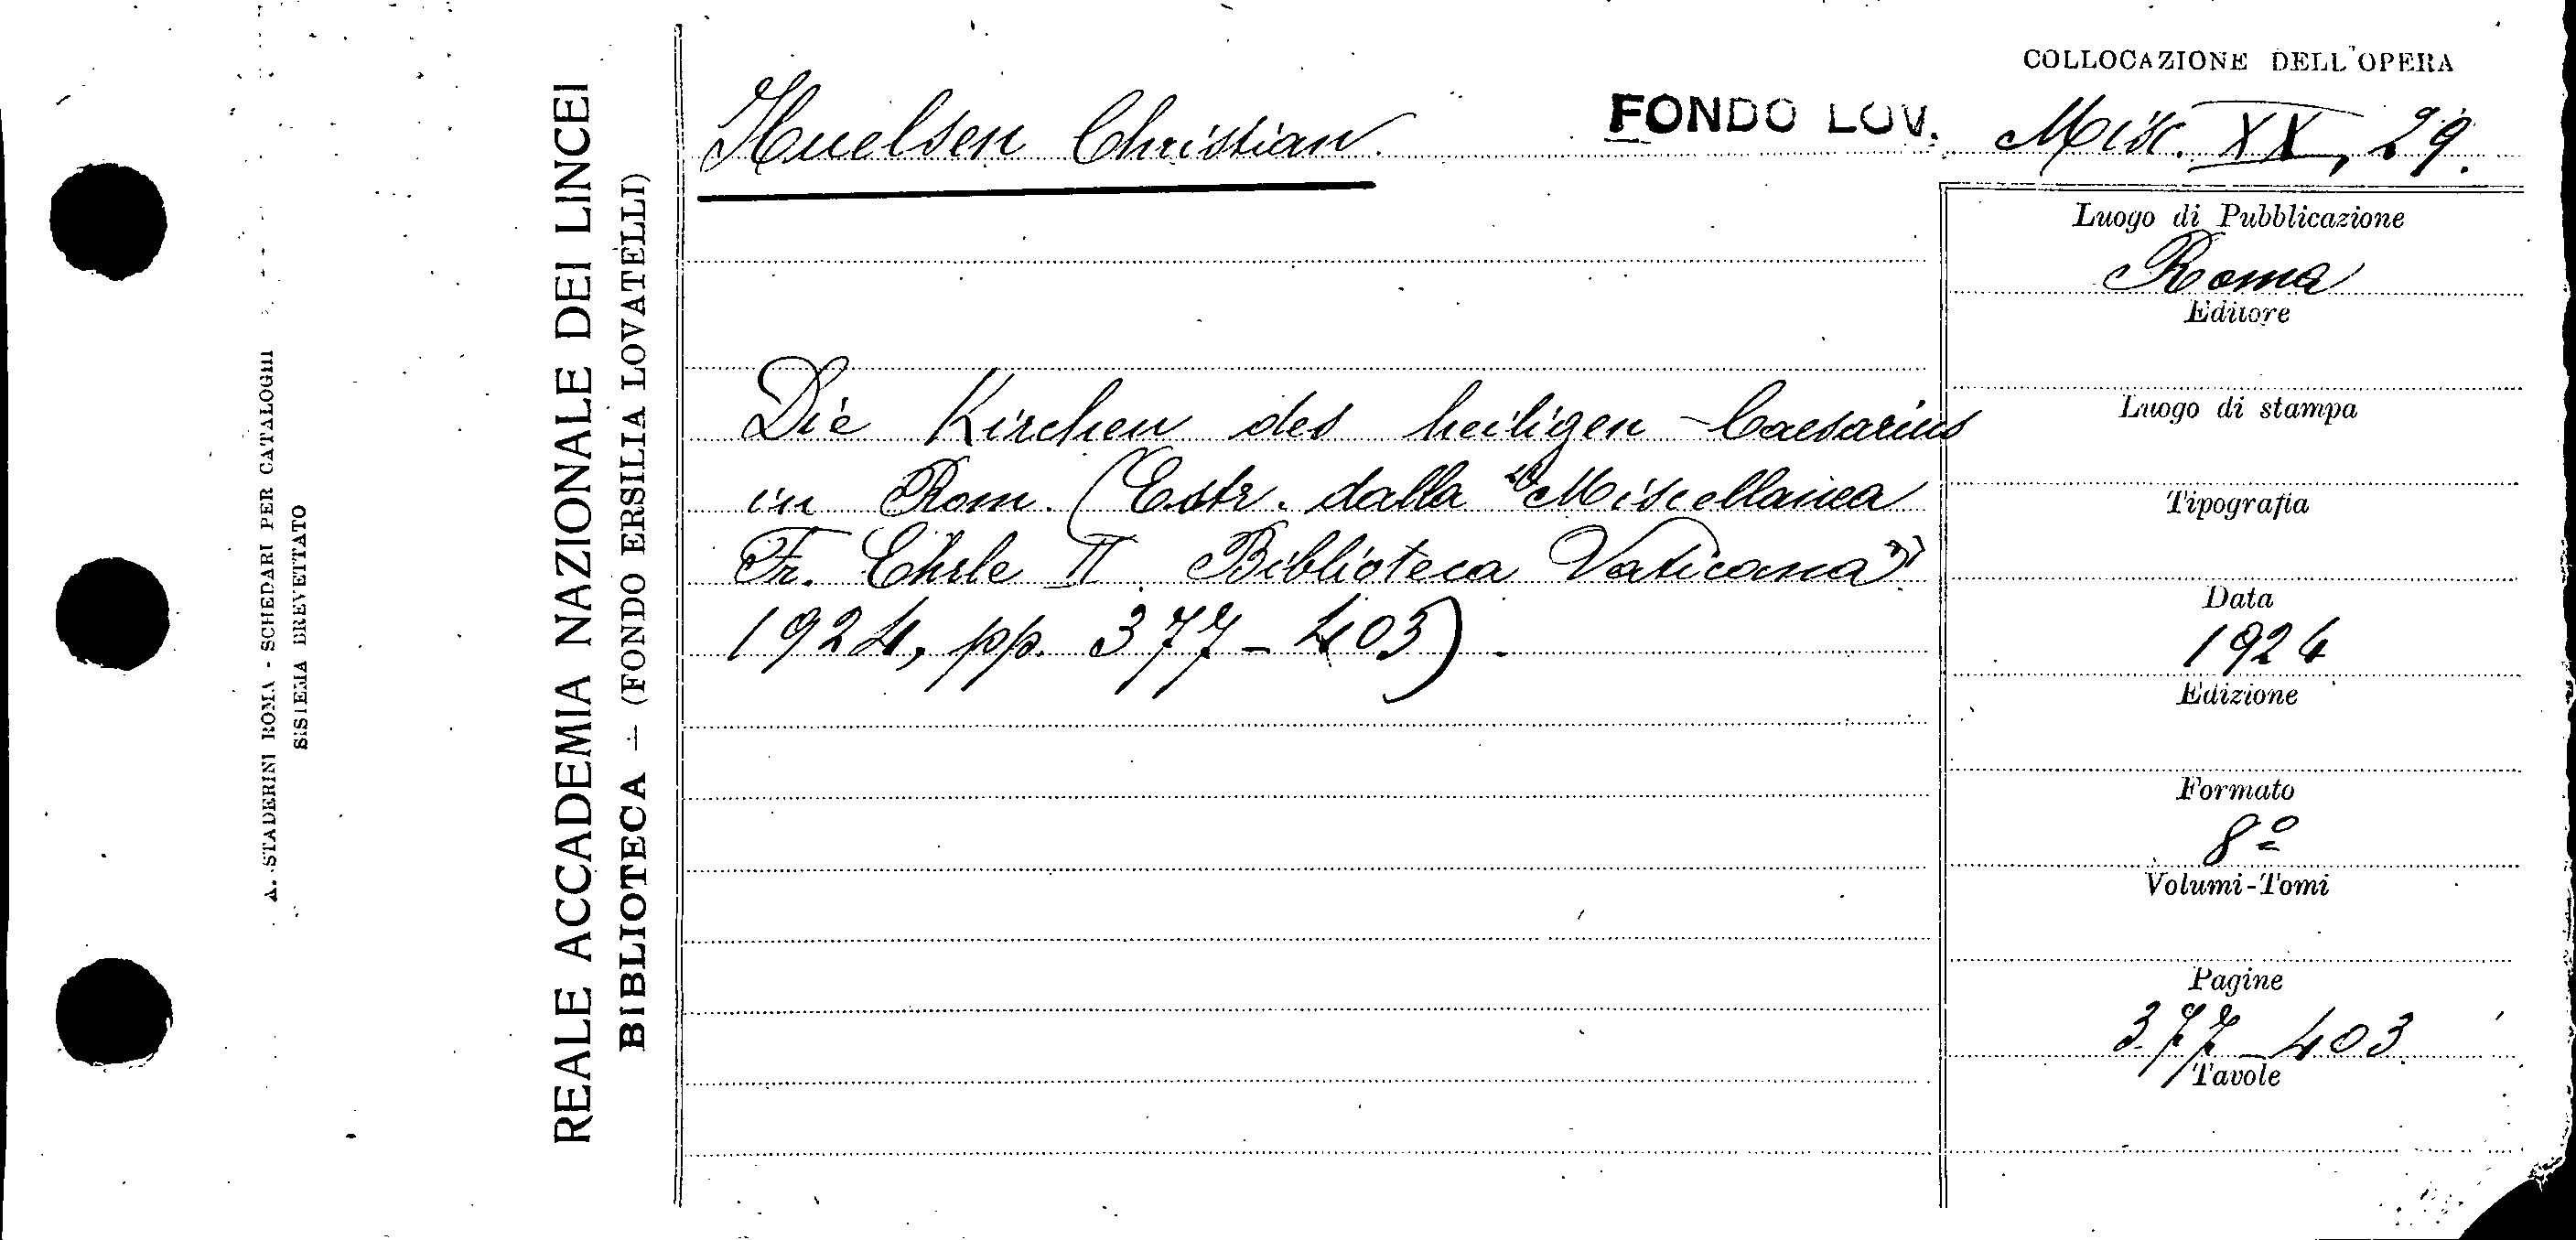 A. STADERINI ROMA - SCHEDARI PER CATALOGHI
SISTEMA BREVETTATO
REALE ACCADEMIA NAZIONALE DEI LINCEI
BIBLIOTECA - (FONDO ERSILIA LOVATELLI)
Huelsen Christian.
FONDO LOV.
COLLOCAZIONE DELL'OPERA
Misc. XX, 29.
Die Kirchen des heiligen Caesarius
in Rom. (Estr. dalla "Miscellanea
Fr. Ehrle II. Biblioteca Vaticana"
1924, pp. 377-403).
Luogo di Pubblicazione
Roma
Editore
Luogo di stampa
Tipografia
Data
1924
Edizione
Formato
8º
Volumi-Tomi
Pagine
377-403
Tavole